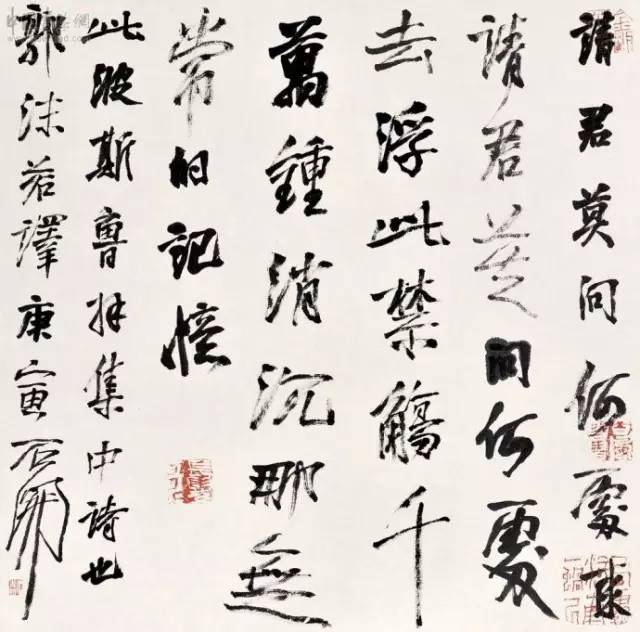 請君莫問何處來
請君莫問何處
去浮此禁觴千
萬鍾消沉那無
常的記憶
此波斯魯拜集中詩也
郭沫若譯庚寅石開